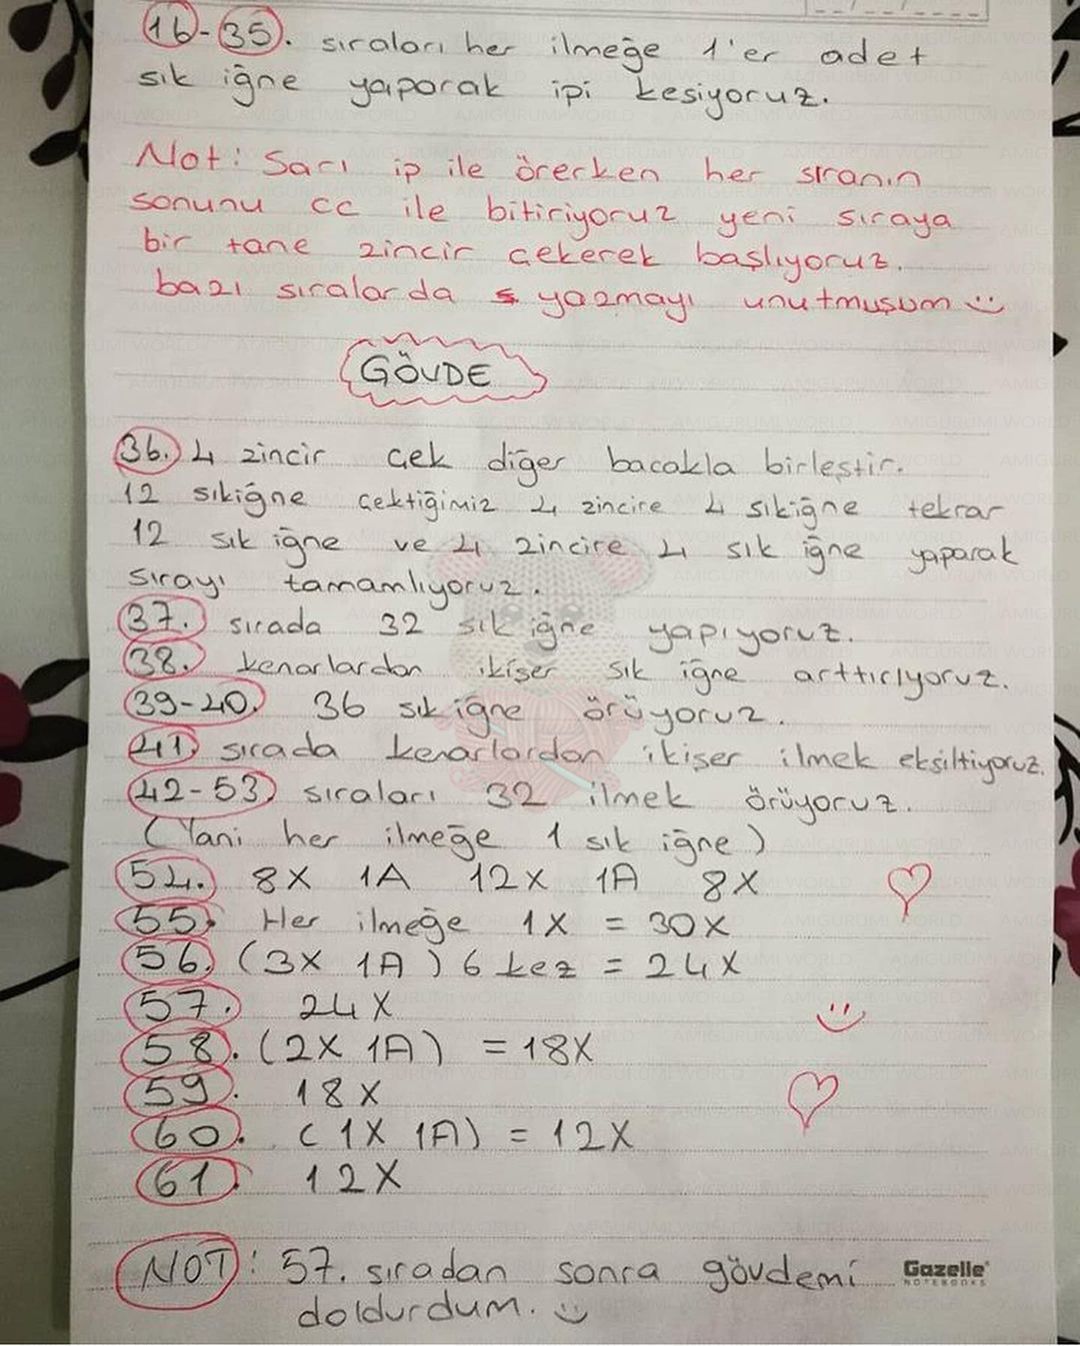 16-35. sıraları her ilmeğe 1'er adet
sık iğne yaparak ipi kesiyoruz.
Not: Sarı ip ile örerken her sıranın
sonunu cc ile bitiriyoruz yeni sıraya
bir tane zincir çekerek başlıyoruz.
bazı sıralarda yazmayı unutmuşum
GÖVDE
36. 4 zincir çek diğer bacakla birleştir.
12 sıkiğne çektiğimiz 4 zincire 4 sıkiğne tekrar
12 sık iğne ve 4 zincire 4 sık iğne yaparak
sırayı tamamlıyoruz.
37. sırada 32 sık iğne yapıyoruz.
38. kenarlardan ikişer sık iğne arttırıyoruz.
39-40. 36 sık iğne örüyoruz.
41. sırada kenarlardan ikişer ilmek eksiltiyoruz.
42-53) sıraları 32 ilmek örüyoruz.
(Yani her ilmeğe 1 sık iğne)
54. 8X 1A 12X 1A 8X
55. Her ilmeğe 1X = 30X
56. (3X 1A) 6 kez = 24X
57. 24X
58. (2X 1A) = 18X
59. 18X
60. (1X 1A) = 12X
61 12X
NOT: 57. sıradan sonra gövdemi
doldurdum.
Gazelle
NOTEBOOKS
AMIGURUMI WORLD